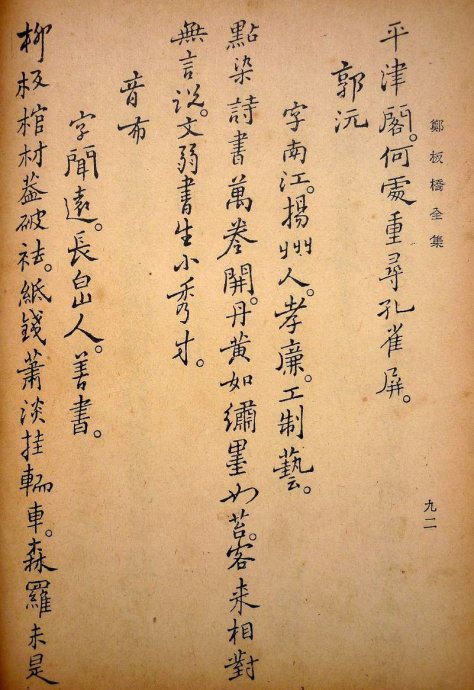 鄭板橋全集
九二
平津閣。何處重尋孔雀屏。
郭沅
字南江。揚州人。孝廉。工制藝。
點染詩書萬卷開。丹黃如繡墨如苔。客來相對
無言說。文弱書生小秀才。
音布
字聞遠。長白山人。善書。
柳板棺材蓋破袪。紙錢蕭淡挂輀車。森羅未是